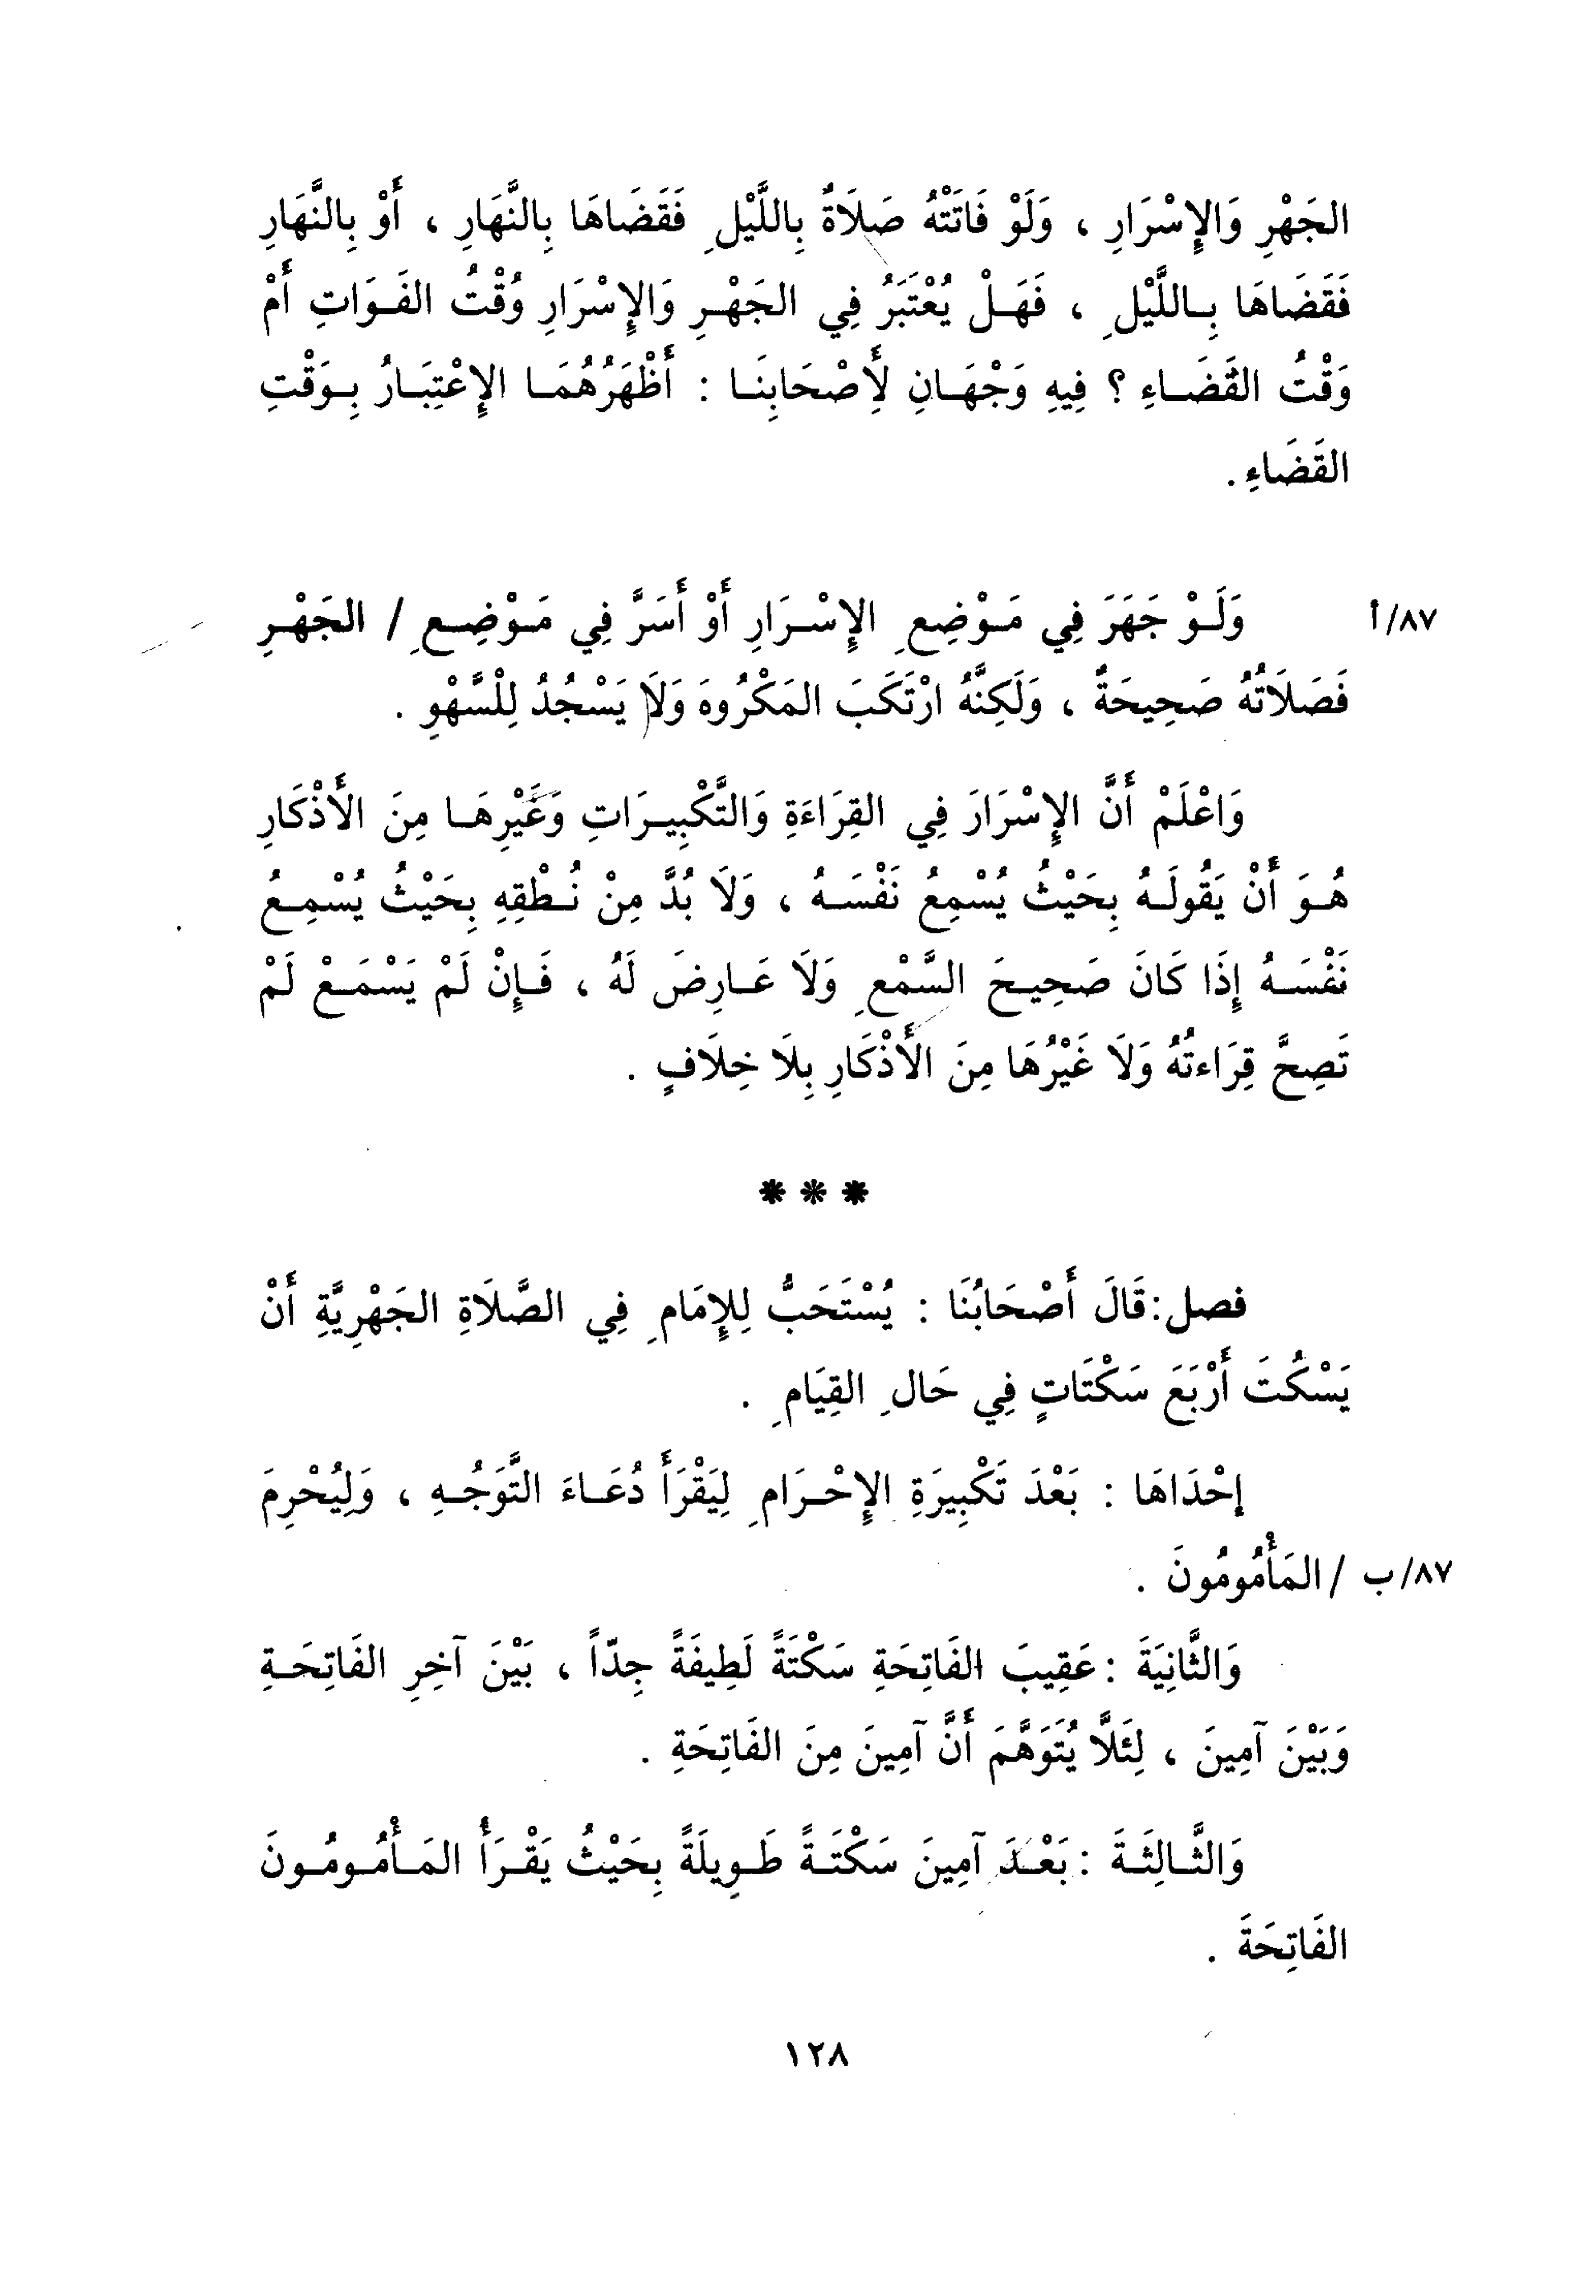 الجَهْرِ وَالإِسْرَارِ ، وَلَوْ فَاتَتْهُ صَلَاةٌ بِاللَّيْلِ فَقَضَاهَا بِالنَّهَارِ ، أَوْ بِالنَّهَارِ
فَقَضَاهَا بِاللَّيْلِ ، فَهَلْ يُعْتَبَرُ فِي الجَهْرِ وَالإِسْرَارِ وُقْتُ الفَوَاتِ أَمْ
وَقْتُ القَضَاءِ ؟ فِيهِ وَجْهَانِ لأَصْحَابِنَا : أَظْهَرُهُمَا الإِعْتِبَارُ بِوَقْتِ
القَضَاءِ .
٨٧/أ وَلَوْ جَهَرَ فِي مَوْضِعِ الإِسْرَارِ أَوْ أَسَرَّ فِي مَوْضِعِ / الجَهْرِ
فَصَلَاتُهُ صَحِيحَةٌ ، وَلَكِنَّهُ ارْتَكَبَ المَكْرُوهَ وَلَا يَسْجُدُ لِلْسَّهْوِ .
وَاعْلَمْ أَنَّ الإِسْرَارَ فِي القِرَاءَةِ وَالتَّكْبِيرَاتِ وَغَيْرِهَا مِنَ الأَذْكَارِ
هُوَ أَنْ يَقُولَهُ بِحَيْثُ يُسْمِعُ نَفْسَهُ ، وَلَا بُدَّ مِنْ نُطْقِهِ بِحَيْثُ يُسْمِعُ
نَفْسَهُ إِذَا كَانَ صَحِيحَ السَّمْعِ وَلَا عَارِضَ لَهُ ، فَإِنْ لَمْ يَسْمَعْ لَمْ
تَصِحَّ قِرَاءتُهُ وَلَا غَيْرُهَا مِنَ الأَذْكَارِ بِلَا خِلَافٍ .
* * *
فصل : قَالَ أَصْحَابُنَا : يُسْتَحَبُّ لِلإِمَامِ فِي الصَّلَاةِ الجَهْرِيَّةِ أَنْ
يَسْكُتَ أَرْبَعَ سَكْتَاتٍ فِي حَالِ القِيَامِ .
إِحْدَاهَا : بَعْدَ تَكْبِيرَةِ الإِحْرَامِ لِيَقْرَأَ دُعَاءَ التَّوَجُهِ ، وَلِيُحْرِمَ
٨٧/ب / المَأْمُومُونَ .
وَالثَّانِيَةَ : عَقِيبَ الفَاتِحَةِ سَكْتَةً لَطِيفَةً جِدّاً ، بَيْنَ آخِرِ الفَاتِحَةِ
وَبَيْنَ آمِينَ ، لِئَلَّا يُتَوَهَّمَ أَنَّ آمِينَ مِنَ الفَاتِحَةِ .
وَالثَّالِثَةَ : بَعْدَ آمِينَ سَكْتَةً طَوِيلَةً بِحَيْثُ يَقْرَأُ المَأْمُومُونَ
الفَاتِحَةَ .
١٢٨